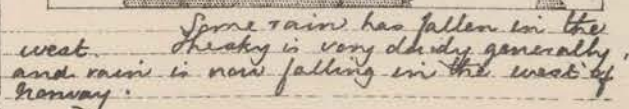 Some rain has fallen in the
west. The sky is very cloudy generally,
and rain is now falling in the west of
Norway.